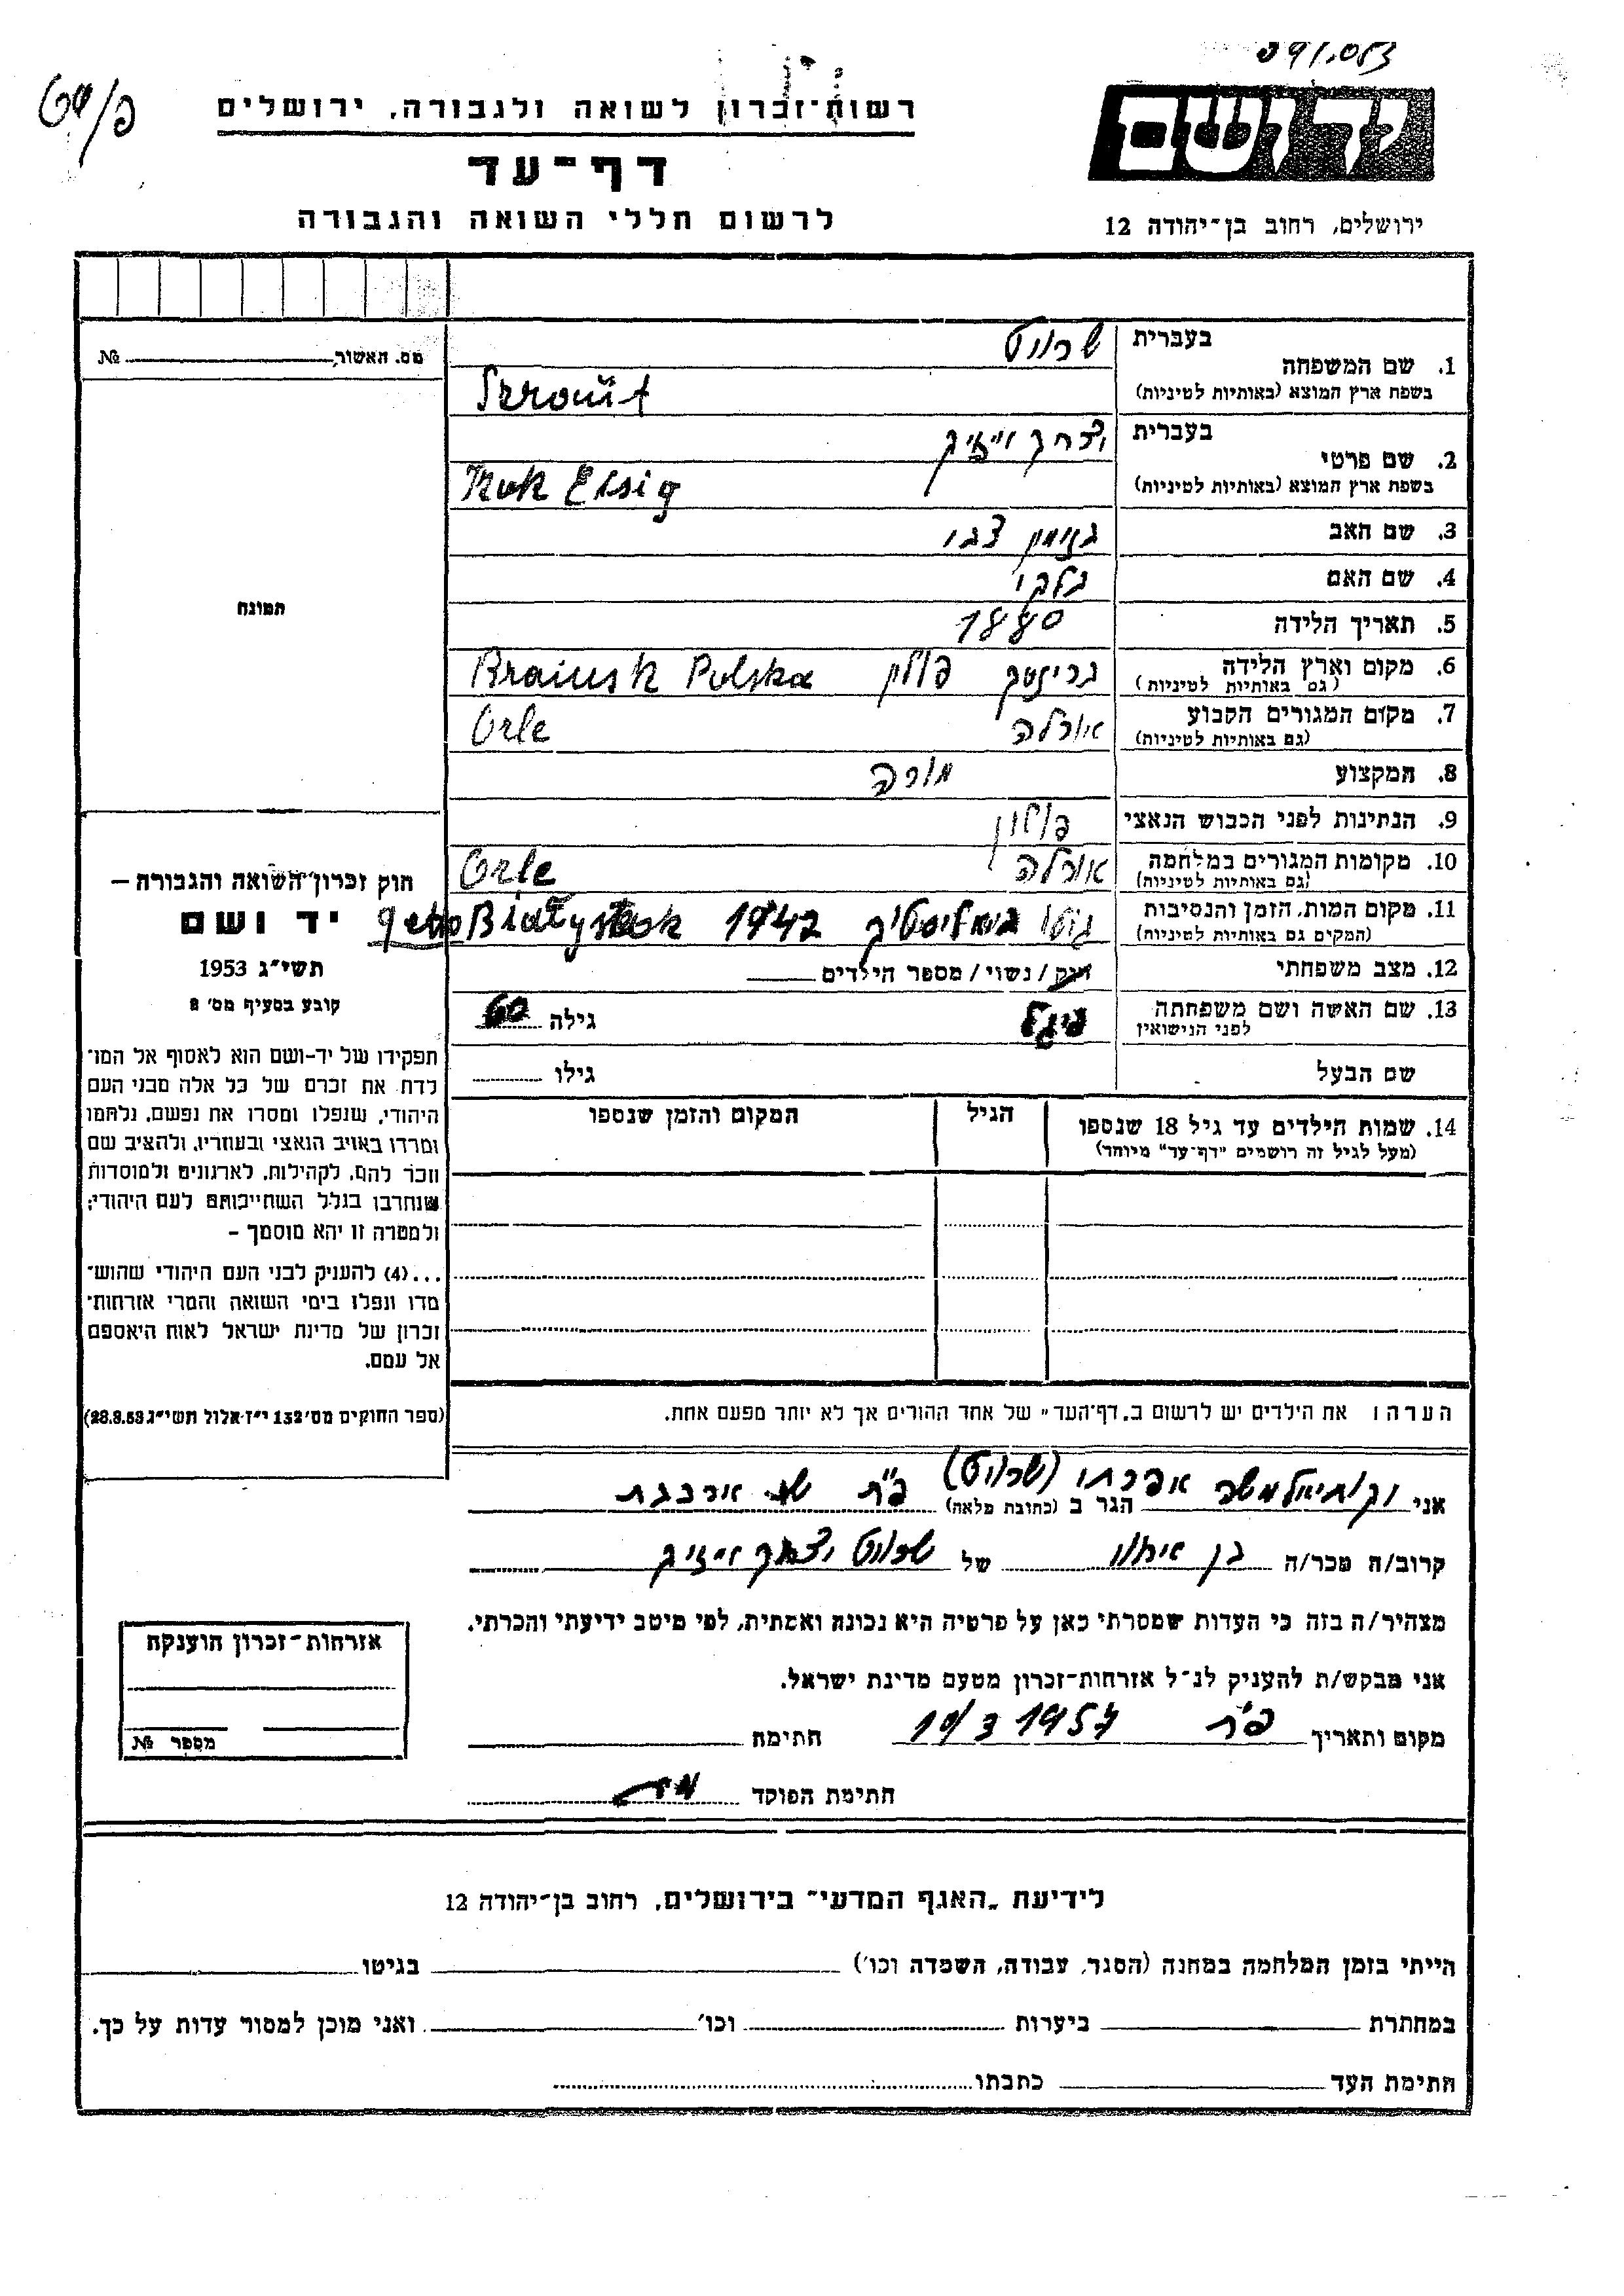 רשות-זכרון לשואה ולגבורה, ירושלים
דף-עד
לרשום חללי השואה והגבורה
יד ושם
ירושלים, רחוב בן-יהודה 12
מס. האשור № 
1. שם המשפחה
בעברית
שרוט
בשפת ארץ המוצא (באותיות לטיניות)
2. שם פרטי
בעברית
יצחק אייזיק
בשפת ארץ המוצא (באותיות לטיניות)
3. שם האב
4. שם האם
5. תאריך הלידה 1880
6. מקום וארץ הלידה
(גם באותיות לטיניות)
פולין Polska
7. מקום המגורים הקבוע
(גם באותיות לטיניות)
אורלה Orle
8. המקצוע מורה
9. הנתינות לפני הכבוש הנאצי
10. מקומות המגורים במלחמה
(גם באותיות לטיניות)
אורלה Orle
11. מקום המות, הזמן והנסיבות
(המקום גם באותיות לטיניות)
גטו ביאליסטוק 1942
12. מצב משפחתי רוק / נשוי / מספר הילדים
13. שם האשה ושם משפחתה
לפני הנישואין
גילה 60
שם הבעל גילו
14. שמות הילדים עד גיל 18 שנספו
(מעל לגיל זה רושמים "דף-עד" מיוחד)
הגיל
המקום והזמן שנספו
תמונה
חוק זכרון השואה והגבורה –
יד ושם
תשי"ג 1953
קובע בסעיף מס' 8
תפקידו של יד-ושם הוא לאסוף אל המו־
לדת את זכרם של כל אלה מבני העם
היהודי, שנפלו ומסרו את נפשם, נלחמו
ומרדו באויב הנאצי ובעוזריו, ולהציב שם
וזכר להם, לקהילות, לארגונים ולמוסדות
שנחרבו בגלל השתייכותם לעם היהודי;
ולמטרה זו יהא מוסמך –
...(4) להעניק לבני העם היהודי שהוש־
מדו ונפלו בימי השואה והמרי אזרחות־
זכרון של מדינת ישראל לאות היאספם
אל עמם.
(ספר החוקים מס' 132 י"ז אלול תשי"ג 28.8.53)
הערה: את הילדים יש לרשום ב"דף-העד" של אחד ההורים אך לא יותר מפעם אחת.
אני (שרוט) הגר ב (כתובת מלאה) פ"ת
קרוב/ה מכר/ה בן אחיו של שרוט יצחק אייזיק
מצהיר/ה בזה כי העדות שמסרתי כאן על פרטיה היא נכונה ואמתית, לפי מיטב ידיעתי והכרתי.
אני מבקש/ת להעניק לנ"ל אזרחות-זכרון מטעם מדינת ישראל.
מקום ותאריך פ"ת 10/3 1957 חתימה
חתימת הפוקד
אזרחות-זכרון הוענקה
מספר №
לידיעת "האגף המדעי" בירושלים, רחוב בן-יהודה 12
הייתי בזמן המלחמה במחנה (הסגר, עבודה, השמדה וכו') בגיטו
במחתרת ביערות וכו' ואני מוכן למסור עדות על כך.
חתימת העד כתבתו